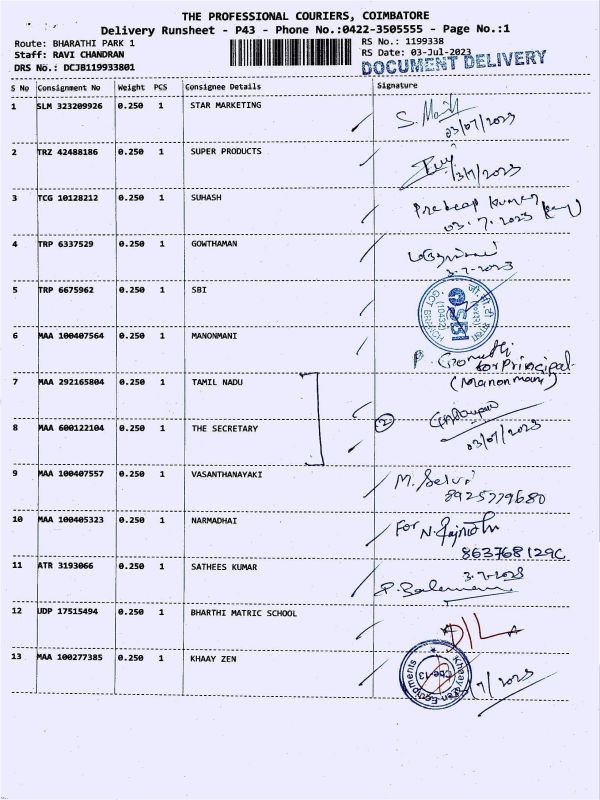 THE PROFESSIONAL COURIERS, COIMBATORE
Delivery Runsheet - P43 - Phone No.:0422-3505555 - Page No.:1
Route: BHARATHI PARK 1 RS No.: 1199338
Staff: RAVI CHANDRAN RS Date: 03-Jul-2023
DRS No.: DCJB119933801 DOCUMENT DELIVERY
S No Consignment No Weight PCS Consignee Details Signature
1 SLM 323209926 0.250 1 STAR MARKETING
03/07/2023
2 TRZ 42488186 0.250 1 SUPER PRODUCTS
3/7/2023
3 TCG 10128212 0.250 1 SUHASH Pradeep Kumar
03.7.2023
4 TRP 6337529 0.250 1 GOWTHAMAN
3-7-2023
5 TRP 6675962 0.250 1 SBI
SBI
GCT BRANCH
(10432)
6 MAA 100407564 0.250 1 MANONMANI
for Principal
(Manonmani)
7 MAA 292165804 0.250 1 TAMIL NADU
2
8 MAA 600122104 0.250 1 THE SECRETARY
03/07/2023
9 MAA 100407557 0.250 1 VASANTHANAYAKI M. Selvi
8925779680
10 MAA 100405323 0.250 1 NARMADHAI For
11 ATR 3193066 0.250 1 SATHEES KUMAR 3-7-2023
12 UDP 17515494 0.250 1 BHARTHI MATRIC SCHOOL
13 MAA 100277385 0.250 1 KHAAY ZEN
Cbe-13
Equipments
/7/2023